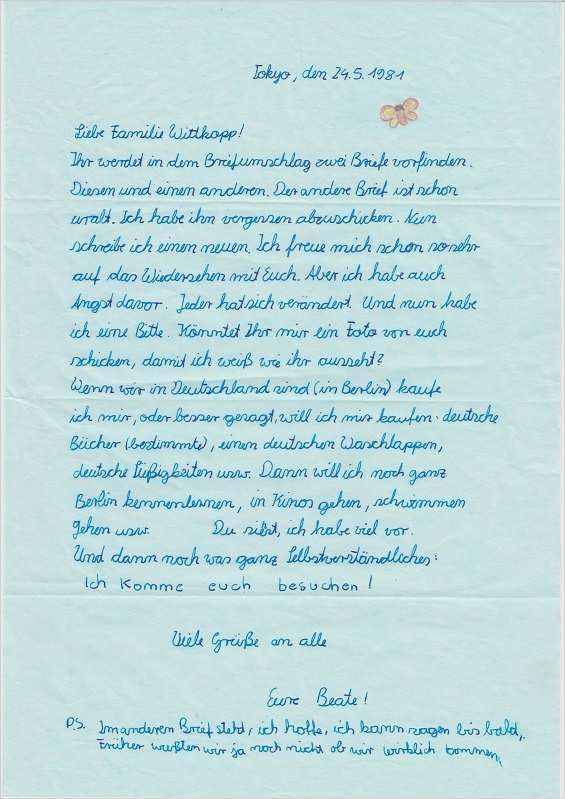 Tokyo, den 24.5.1981
Liebe Familie Wittkopp!
Ihr werdet in dem Briefumschlag zwei Briefe vorfinden.
Diesen und einen anderen. Der andere Brief ist schon
uralt. Ich habe ihn vergessen abzuschicken. Nun
schreibe ich einen neuen. Ich freue mich schon so sehr
auf das Wiedersehen mit Euch. Aber ich habe auch
Angst davor. Jeder hat sich verändert. Und nun habe
ich eine Bitte. Könntet Ihr mir ein Foto von euch
schicken, damit ich weiß wie ihr ausseht?
Wenn wir in Deutschland sind (in Berlin) kaufe
ich mir, oder besser gesagt, will ich mir kaufen: deutsche
Bücher (bestimmte), einen deutschen Waschlappen,
deutsche Süßigkeiten usw. Dann will ich noch ganz
Berlin kennenlernen, in Kinos gehen, schwimmen
gehen usw. Du siehst, ich habe viel vor.
Und dann noch was ganz Selbstverständliches:
Ich komme euch besuchen!
Viele Grüße an alle
Eure Beate!
P.S. Im anderen Brief steht, ich hoffe, ich kann sagen bis bald,
Früher wußten wir ja noch nicht ob wir wirklich kommen.